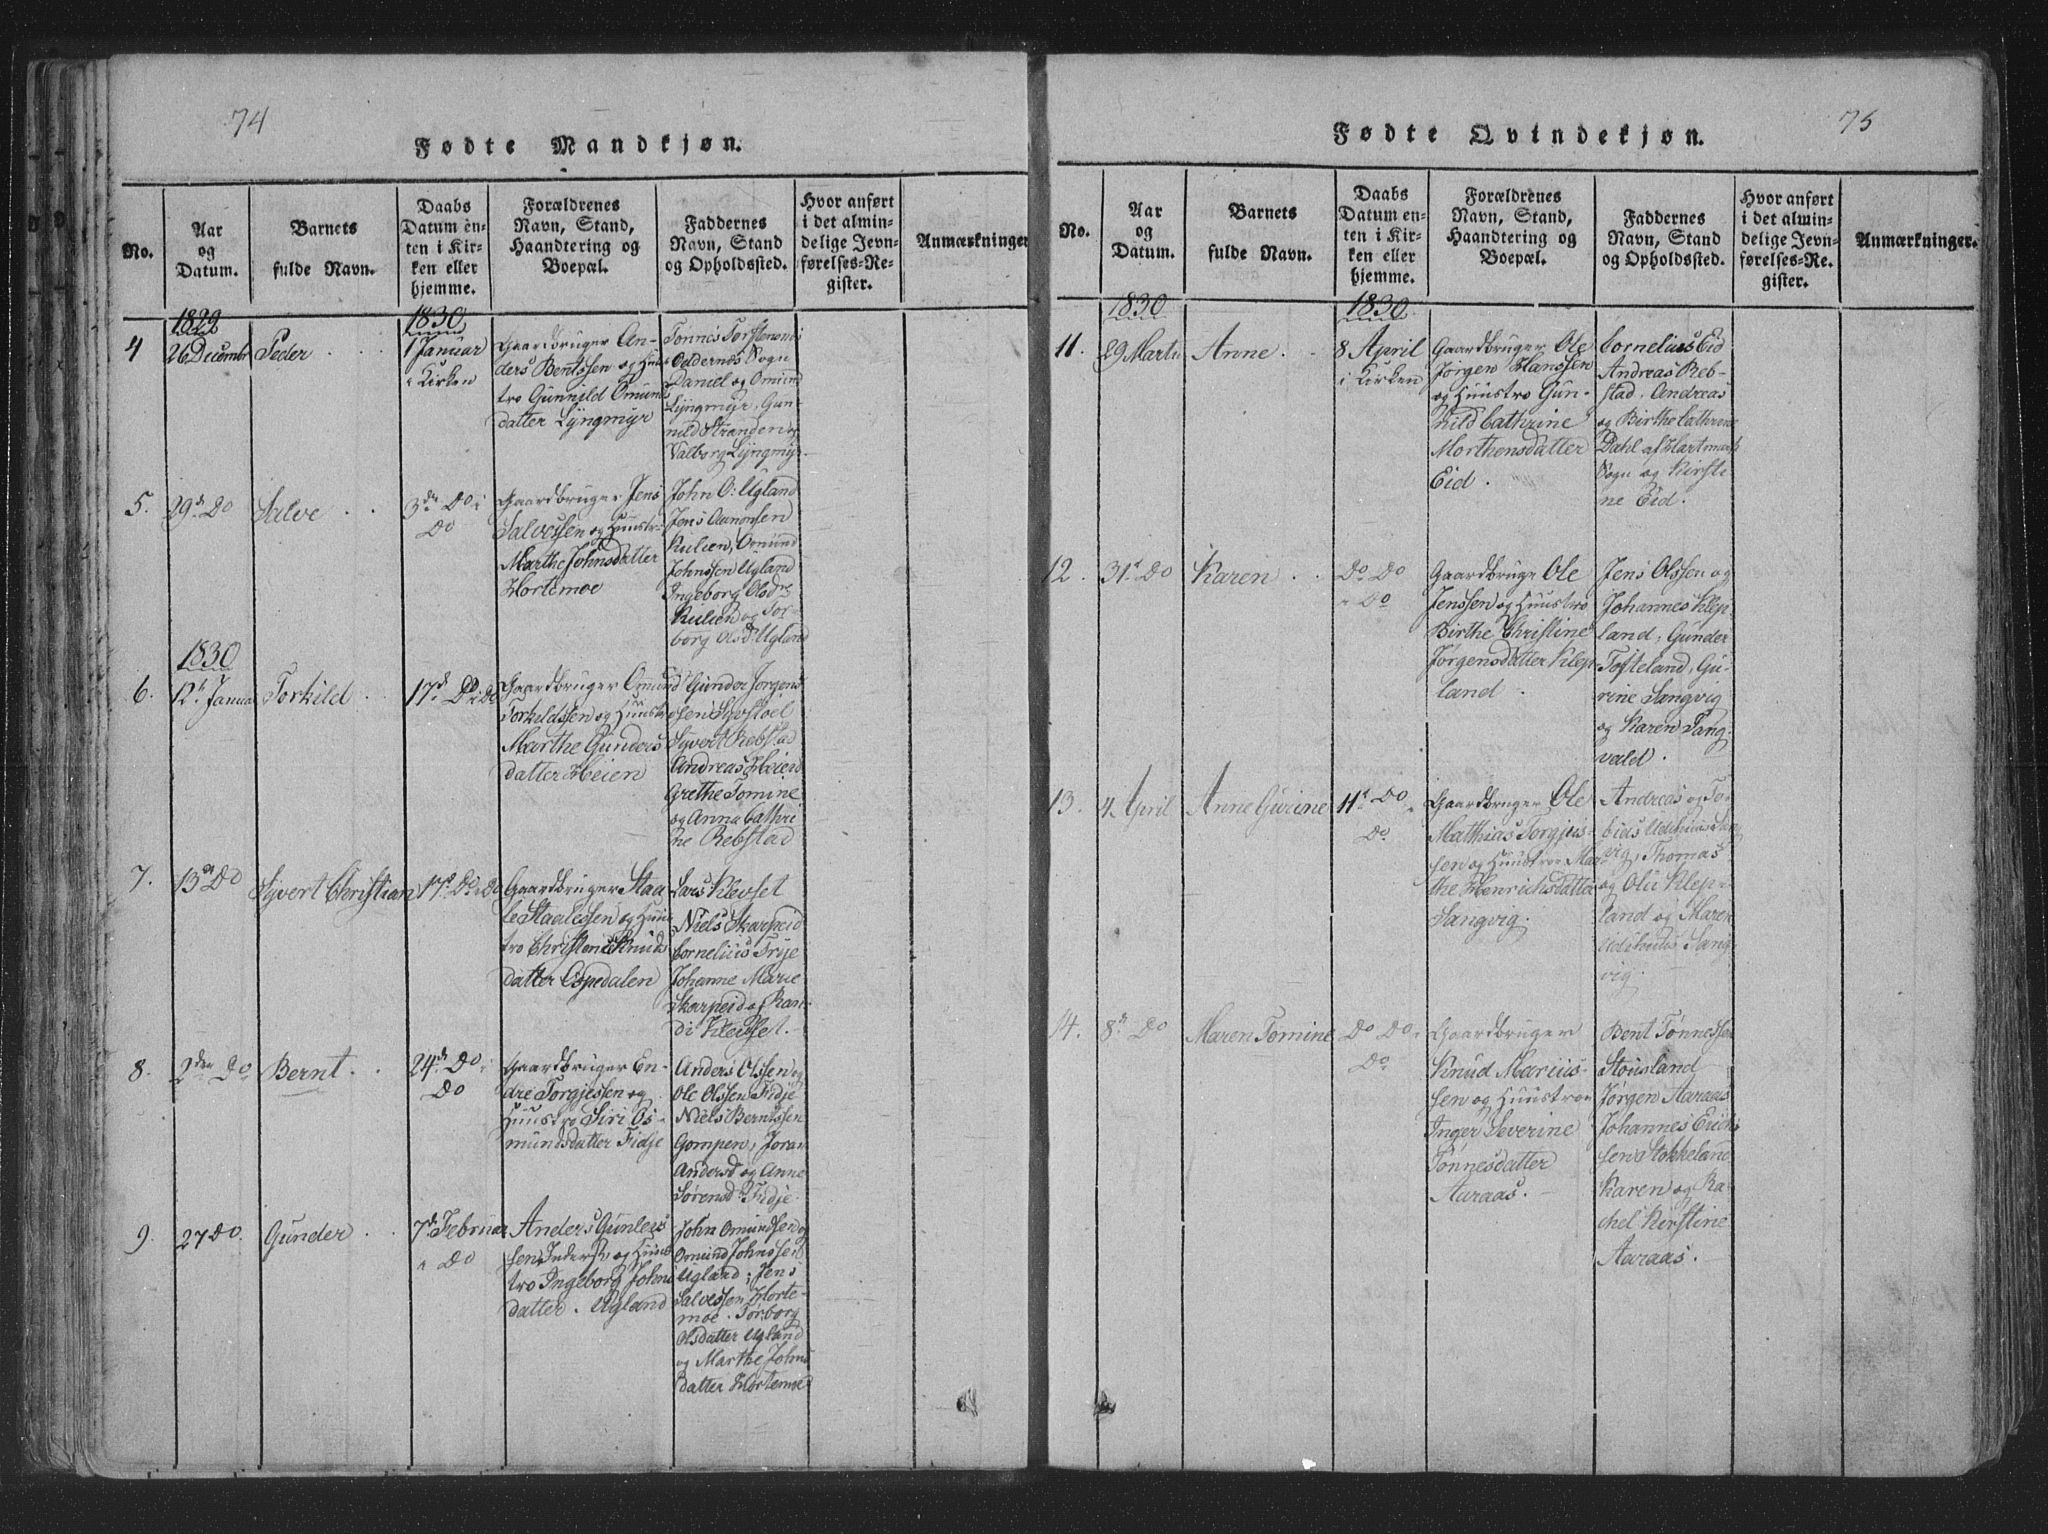 74
Fødte Mandkjøn.
No.
Aar
og
Datum.
Barnets
fulde Navn.
Daabs
Datum en-
ten i Kir-
ken eller
hjemme.
Forældrenes
Navn, Stand,
Haandtering og
Boepæl.
Faddernes
Navn, Stand
og Opholdssted.
Hvor anført
i det almin-
delige Jevn-
førelses-Re-
gister.
Anmærkninger
1829
4
26 Decembr
Peder
1830
1 Januar
i Kirken
Gaardbruger An-
ders Bentssen og Huus-
tro Gunnild Omunds
datter Lyngmyr
Tønnes Torstensen i
Oddernes Sogn
Daniel og Omund
Lyngmyr, Gun-
nild Stranden og
Valborg Lyngmyr
5.
29de Do
Salve
3de Do i
Do
Gaardbruger Jens
Salvessen og Huustro
Marthe Johnsdatter
Hortemoe
John O: Ugland
Jens Aanonsen
Kulien, Omund
Johnssen Ugland
Ingeborg Olsdr
Kulien og Tor-
borg Olsdr Ugland
1830
6.
12te Januar
Torkild
17de Do i Do
Gaardbruger Omund
Torkeldssen og Huustro
Marthe Gunders
datter Heien
Gunder Jørgens
sen
Syvert Rebstad
Andreas Heien
Grethe Tomine
og Anna Cathri
ne Rebstad
7.
13de Do
Syvert Christian
17de Do i Do
Gaardbruger Staa
le Staalessen og Huus
tro Christine Knuds
datter Espedalen
Lars Klevset
Niels Skarpeid
Cornelius Frye
Johanne Marie
Skarpeid og Ran-
di Klevset.
8.
2den Do
Bernt.
24de Do i
Do
Gaardbruger En-
dre Torgjessen og
Huustro Siri Os-
mundsdatter Fidje
Anders Olssen og
Ole Olssen Fidje
Niels Berntssen
Gompen, Joran
Andersd og Anne
Sørensdr Fidje
9.
27 Do.
Gunder
7de Februar
i Do
Anders Gunleus
sen og Huus
tro Ingeborg Johns
datter. Ugland
John Omundsen og
Omund Johnssen
Ugland; Jens
Salvessen Horte
moe. Torborg
Olsdatter Ugland
og Marthe Johns
datter Hortemoe
75
Fødte Qvindekjøn.
No.
Aar
og
Datum.
Barnets
fulde Navn.
Daabs
Datum en-
ten i Kir-
ken eller
hjemme.
Forældrenes
Navn, Stand,
Haandtering og
Boepæl.
Faddernes
Navn, Stand
og Opholdssted.
Hvor anført
i det almin-
delige Jevn-
førelses-Re-
gister.
Anmærkninger.
1830
11.
29 Marts
Anne
1830
8 April
i Kirken
Gaardbruger Ole
Jørgen Hanssen
og Huustro Gun-
hild Cathrine
Morthensdatter
Eid.
Cornelius Eid
Andreas Reb-
stad, Andreas
og Birthe Cathrine
Dahl af Hartmark
Sogn og Kirsti
ne Eid.
12.
31te Do
Karen
Do Do
i Do
Gaardbruge Ole
Jenssen og Huustro
Birthe Christine
Jørgensdatter Klep
land
Jens Olssen og
Johannes Klep
land, Gunder
Tofteland, Gu-
rine Sangvig
og Karen Tang
vald.
13.
4. April
Anne Gurine
11te Do i
Do
Gaardbruger Ole
Matthias Torgjus-
sen og Huustroe Mar
the Henrichsdatter
Sangvig.
Andreas og To-
bias Udskuus Sang
vig, Thomas
og Olu Klep-
land og Maren
Udskuus Sang-
vig.
14.
8de Do
Maren Tomine
Do Do i
Do
Gaardbruger
Knud Marius-
sen og Huustroe
Inger Severine
Tønnesdatter
Aaraas.
Bent Tønnessen
Stousland
Jørgen Aaraas
Johannes Erich
sen Stokkeland
Karen og Ra-
chel Kirstine
Aaraas.